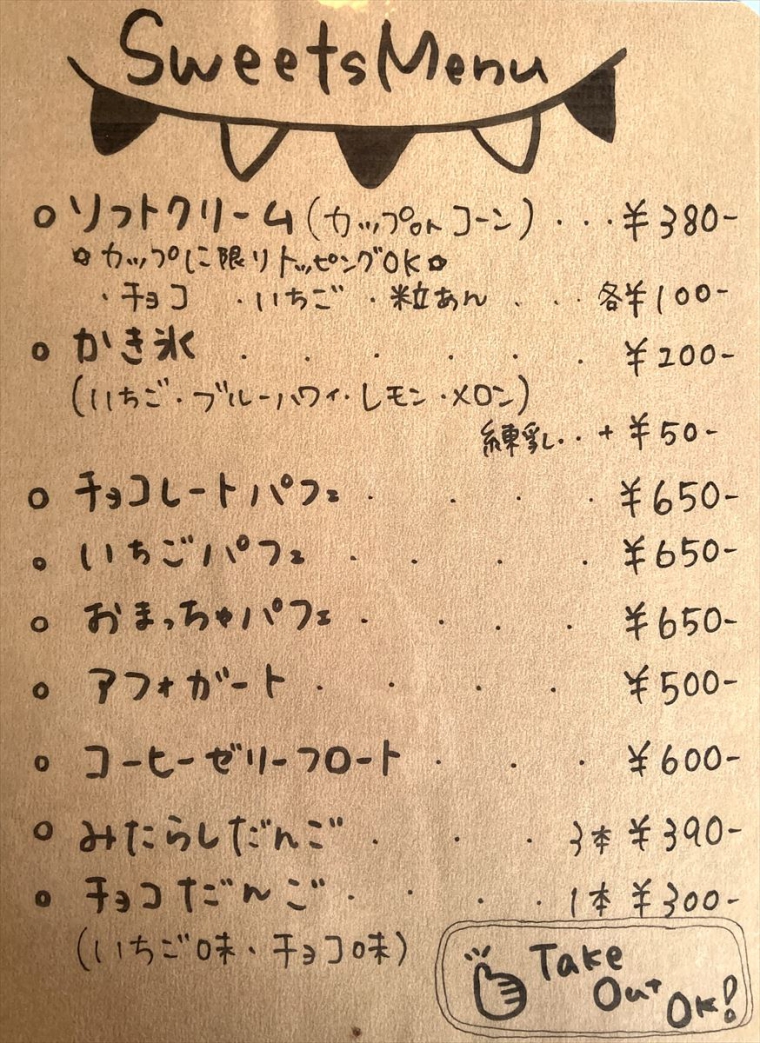 Sweets Menu
ソフトクリーム(カップorコーン)・・・¥380-
✿カップに限りトッピングOK✿
・チョコ ・いちご ・粒あん ・・・各¥100-
かき氷 ・・・・・・¥200-
(いちご・ブルーハワイ・レモン・メロン)
練乳・・+¥50-
チョコレートパフェ・・・・¥650-
いちごパフェ・・・・¥650-
おまっちゃパフェ・・・¥650-
アフォガート・・・・¥500-
コーヒーゼリーフロート・・・¥600-
みたらしだんご・・・3本¥390-
チョコだんご・・・・1本¥300-
(いちご味・チョコ味)
Take
Out
OK!